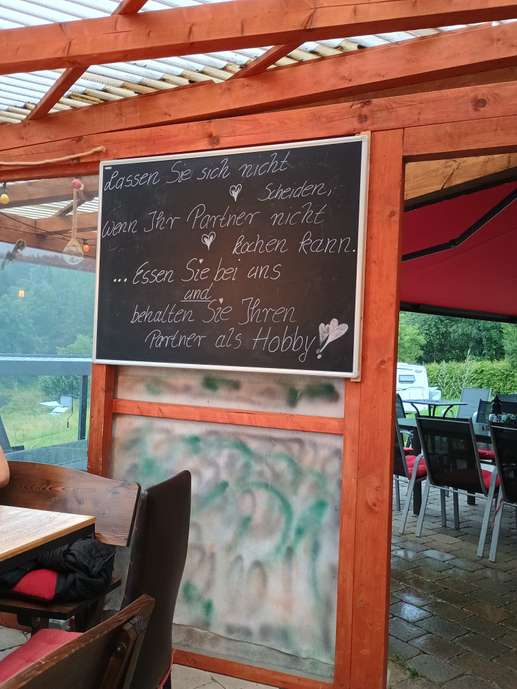 Lassen Sie sich nicht
Scheiden,
wenn Ihr Partner nicht
kochen kann.
... Essen Sie bei uns
und
behalten Sie Ihren
Partner als Hobby!